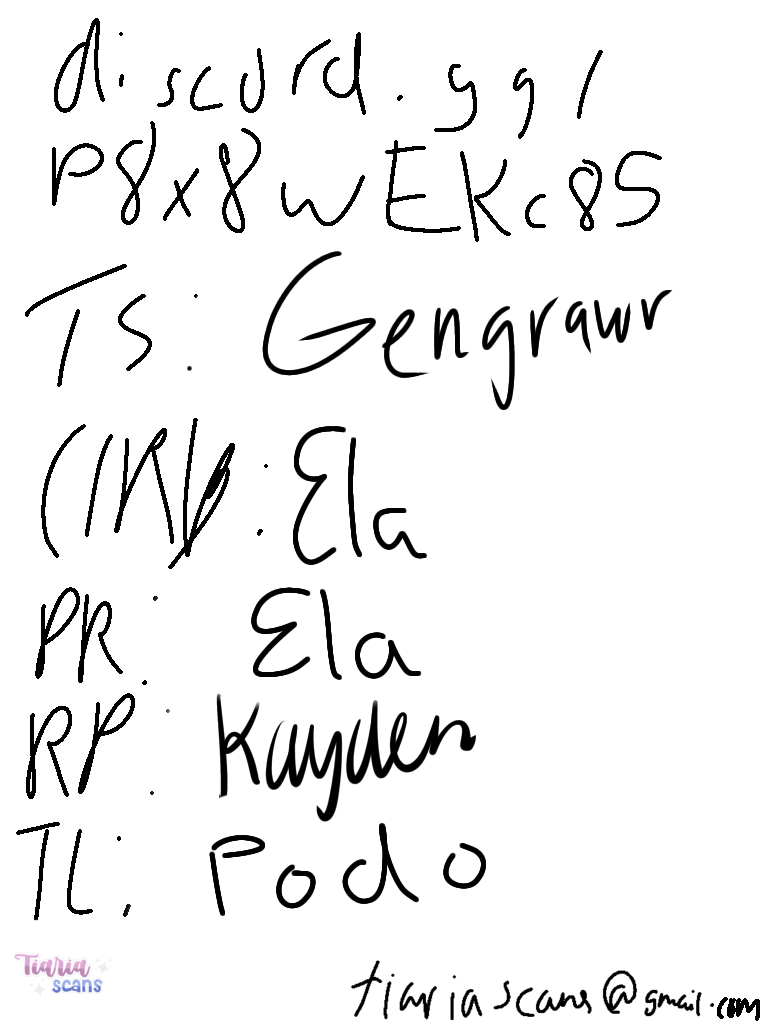 discord.gg/
P8x8wEKc85
TS: Gengrawr
: Ela
PR: Ela
RP: Kayden
TL: Podo
Tiaria
scans
tiariascans@gmail.com